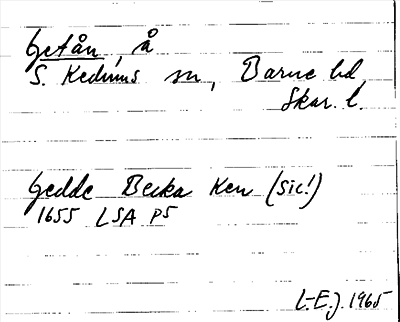 Getån, å
S. Kedums sn, Barne hd,
Skar. l.
Gedde Becka Ken (sic!)
1655 LSA P5
L-E.J. 1965